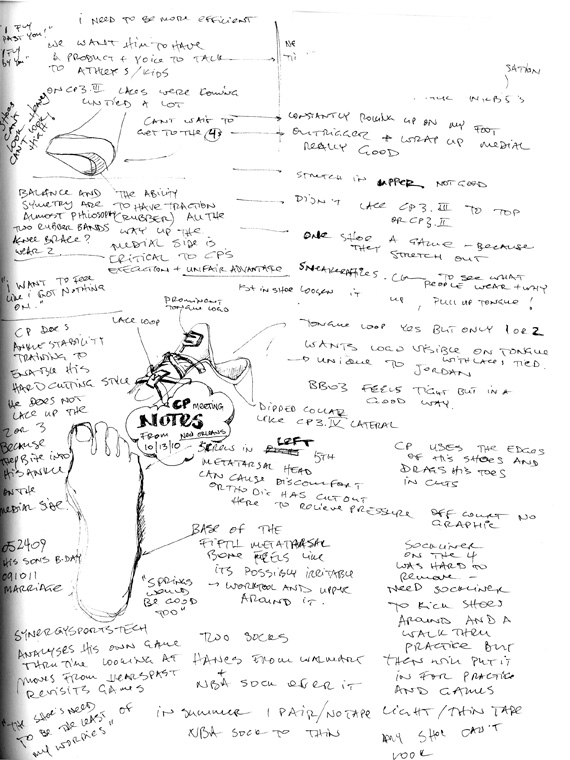 "I FLY PAST YOU!"
"I FLY BY YOU"
I NEED TO BE MORE EFFICIENT
WE WANT HIM TO HAVE
A PRODUCT + VOICE TO TALK
TO ATHLETES/KIDS
ON CP3.III LACES WERE COMING
UNTIED A LOT
NE
TI
SATION
CAN'T WAIT TO
GET TO THE 4s
CONSTANTLY ROLLING UP ON MY FOOT
OUTRIGGER + WRAP UP MEDIAL
REALLY GOOD
SHOES
CAN'T
LOOK
CAN'T LOOK
BALANCE AND
SYMETRY ARE
ALMOST PHILOSOPHY
TWO RUBBER BANDS
KNEE BRACE?
YEAR 2
THE ABILITY
TO HAVE TRACTION
(RUBBER) ALL THE
WAY UP THE
MEDIAL SIDE IS
CRITICAL TO CP'S
EXECUTION + UNFAIR ADVANTAGE
STRETCH IN UPPER NOT GOOD
DIDN'T LACE CP3.III TO TOP
OR CP3.II
ONE SHOE A GAME - BECAUSE
THEY STRETCH OUT
TO SEE WHAT
PEOPLE WEAR + WHY
1ST IN SHOE LOOSEN IT
UP, PULL UP TONGUE!
"I WANT TO FEEL
LIKE I GOT NOTHING
ON."
PROMINENT
TONGUE LOGO
LACE LOOP
TONGUE LOOP YES BUT ONLY 1 OR 2
WANTS LOGO VISIBLE ON TONGUE
WITH LACES TIED.
→ UNIQUE TO JORDAN
BB03 FEELS TIGHT BUT IN A
GOOD WAY.
CP DOES
ANKLE STABILITY
TRAINING TO
ENABLE HIS
HARD CUTTING STYLE
HE DOES NOT
LACE UP THE
2 OR 3
BECAUSE
THEY BITE INTO
HIS ANKLE
ON THE
MEDIAL SIDE
CP MEETING
NOTES
FROM NEW ORLEANS
10/13/10
DIPPED COLLAR
LIKE CP3.IV LATERAL
SCREWS IN LEFT 5TH
METATARSAL HEAD
CAN CAUSE DISCOMFORT
ORTHOTIC HAS CUT OUT
HERE TO RELIEVE PRESSURE
CP USES THE EDGES
OF HIS SHOES AND
DRAGS HIS TOES
IN CUTS
OFF COURT NO
GRAPHIC
BASE OF THE
FIFTH METATARSAL
BONE FEELS LIKE
ITS POSSIBLY IRRITABLE
→ WORKTOOL AND UPPER
AROUND IT.
052409
HIS SONS B-DAY
091011
MARRIAGE
"SPRINGS
WOULD
BE GOOD
TOO"
SOCKLINER
ON THE 4
WAS HARD TO
REMOVE -
NEED SOCKLINER
TO KICK SHOES
AROUND AND A
WALK THRU
PRACTICE BUT
THEN WILL PUT IT
IN FOR PRACTICE
AND GAMES
SYNERGYSPORTSTECH
ANALYSES HIS OWN GAME
THRU TIME LOOKING AT
MOVES FROM YEARS PAST
REVISITS GAMES
TWO SOCKS
HANES FROM WALMART
+
NBA SOCK OVER IT
"THE SHOE'S NEED
TO BE THE LEAST OF
MY WORRIES"
IN SUMMER 1 PAIR/NO TAPE LIGHT/THIN TAPE
NBA SOCK TO THIN
ANY SHOE CAN'T
LOOK